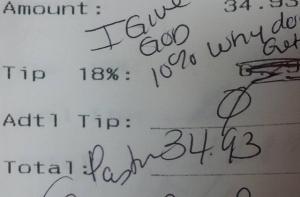 Amount: 34.93
I Give
GOD
10% why do
Get
Tip 18%:
Adtl Tip: 0
Total: 34.93
Pastor